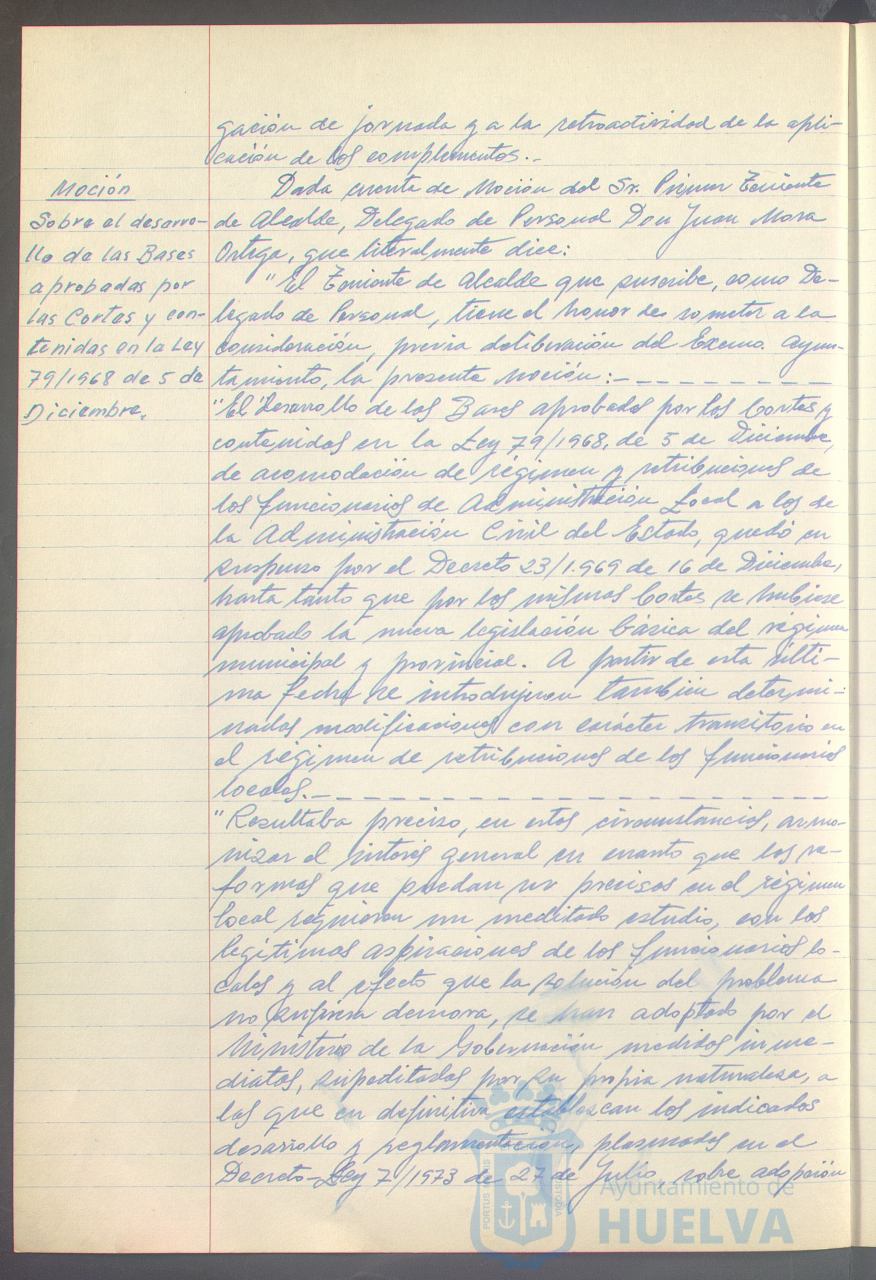 gación de jornada y a la retroactividad de la apli-
cación de los complementos.-
Moción
Sobre el desarro-
llo de las Bases
aprobadas por
las Cortes y con-
tenidas en la Ley
79/1968 de 5 de
Diciembre.
Dada cuenta de Moción del Sr. Primer Teniente
de Alcalde, Delegado de Personal Don Juan Mora
Ortega, que literalmente dice:
"El Teniente de Alcalde que suscribe, como De-
legado de Personal, tiene el honor de someter a la
consideración, previa deliberación del Excmo. Ayun-
tamiento, la presente Moción:- - - - - - - - -
"El Desarrollo de las Bases aprobadas por las Cortes y
contenidas en la Ley 79/1968, de 5 de Diciembre,
de acomodación de régimen y retribuciones de
los funcionarios de Administración Local a los de
la Administración Civil del Estado, quedó en
suspenso por el Decreto 23/1.969 de 16 de Diciembre,
hasta tanto que por las mismas Cortes se hubiese
aprobado la nueva legislación básica del régimen
municipal y provincial. A partir de esta últi-
ma fecha se introdujeron también determi-
nadas modificaciones con carácter transitorio en
el régimen de retribuciones de los funcionarios
locales.- - - - - - - - - - - - - - - - - -
"Resultaba preciso, en estas circunstancias, armo-
nizar el interés general en cuanto que las re-
formas que puedan ser precisas en el régimen
local requieran un meditado estudio, con las
legítimas aspiraciones de los funcionarios lo-
cales y al efecto que la solución del problema
no sufriera demora, se han adoptado por el
Ministerio de la Gobernación medidas inme-
diatas, supeditadas por su propia naturaleza, a
las que en definitiva establezcan los indicados
desarrollo y reglamentación, plasmadas en el
Decreto-Ley 7/1973 de 27 de Julio, sobre adopción
Ayuntamiento de
HUELVA